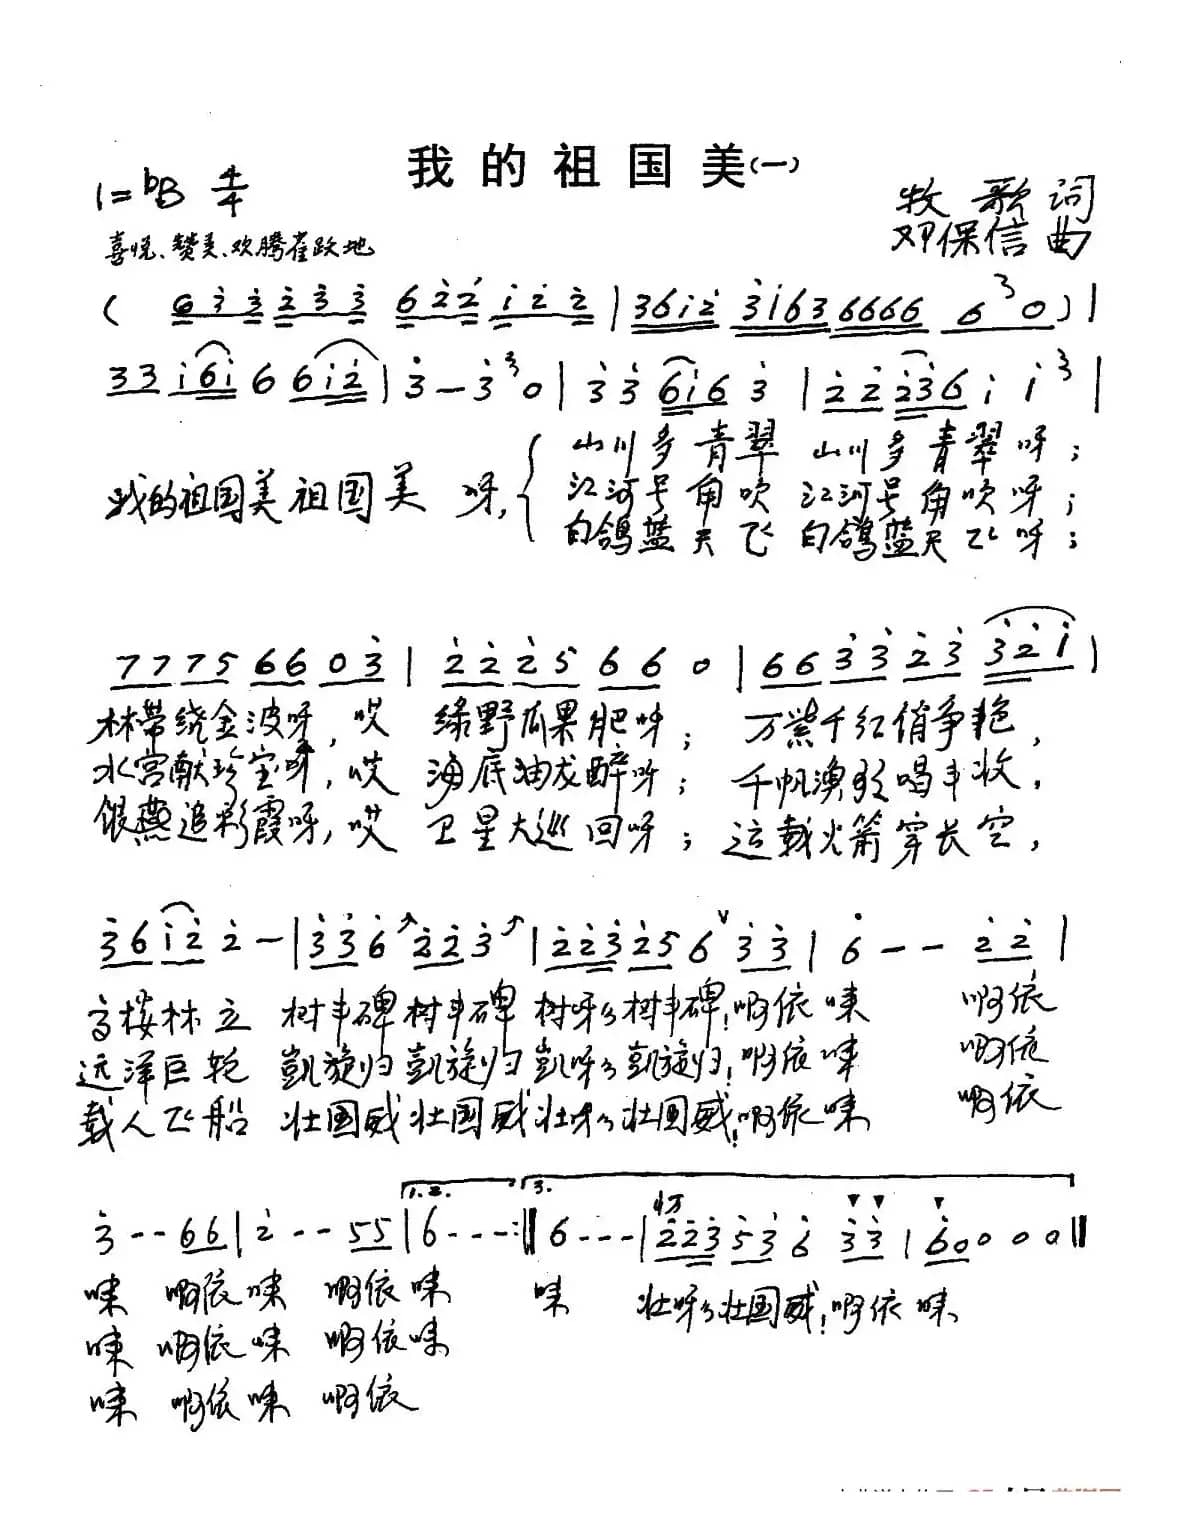 我的祖国美(一)
1=bB 4/4
牧歌词
邓保信曲
喜悦、赞美、欢腾雀跃地
( 6 3 3 2 3 3 6 2 2 1 2 2 | 3 6 1 2 3 1 6 3 6 6 6 6 6 3 0 ) |
3 3 1 6 1 6 6 1 2 | 3 - 3 3 0 | 3 3 6 1 6 3 | 2 2 2 3 6 1 1 3 |
我的祖国美祖国美 呀,
山川多青翠 山川多青翠呀;
江河号角吹 江河号角吹呀;
白鸽蓝天飞 白鸽蓝天飞呀;
7 7 7 5 6 6 0 3 | 2 2 2 5 6 6 0 | 6 6 3 3 2 3 3 2 1 |
林带绕金波呀,哎 绿野瓜果肥呀; 万紫千红俏争艳,
水宫献珍宝呀,哎 海底油龙醉呀; 千帆渔歌唱丰收,
银燕追彩霞呀,哎 卫星大巡回呀; 运载火箭穿长空,
3 6 1 2 2 - | 3 3 6 2 2 3 | 2 2 3 2 5 6 V 3 3 | 6 - - 2 2 |
高楼林立 树丰碑树丰碑 树呀么树丰碑!啊依唻 啊依
远洋巨轮 凯旋归凯旋归 凯呀么凯旋归!啊依唻 啊依
载人飞船 壮国威壮国威 壮呀么壮国威!啊依唻 啊依
1.2. 3.
3 - - 6 6 | 2 - - 5 5 | 6 - - - :‖ 6 - - - | 2 2 3 5 3 6 3 3 | 6 0 0 0 0 ‖
唻 啊依唻 啊依唻 唻 壮呀么壮国威!啊依唻
唻 啊依唻 啊依唻
唻 啊依唻 啊依